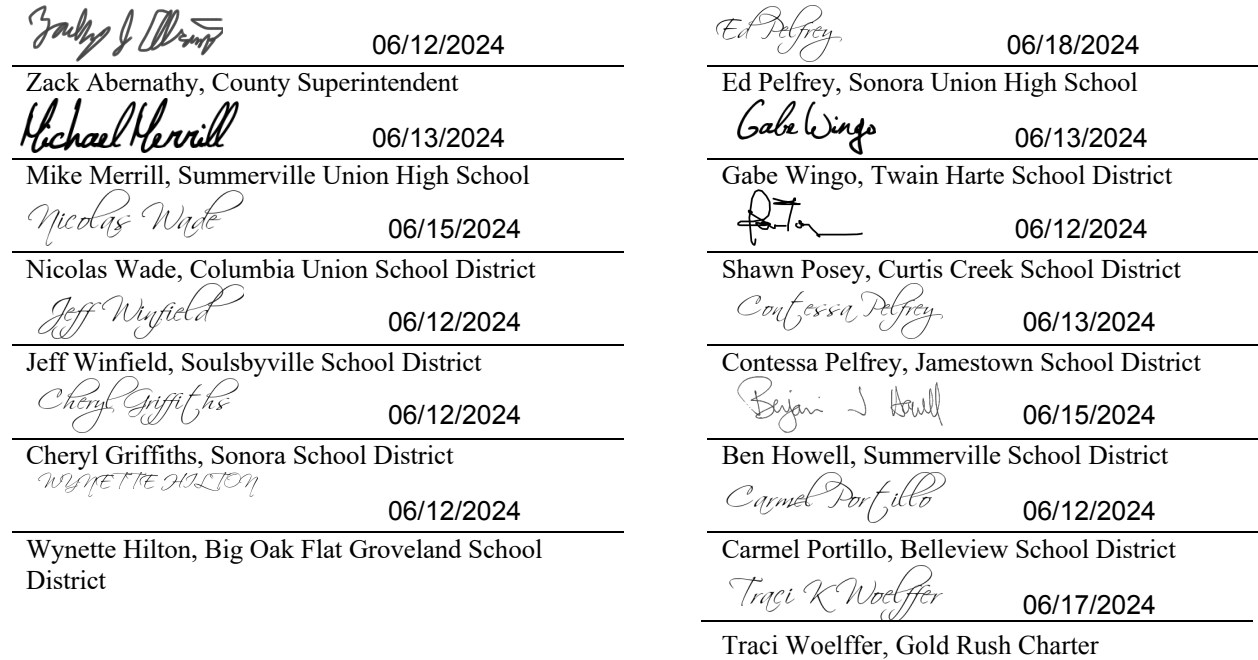 06/12/2024
Zack Abernathy, County Superintendent
Michael Merrill 06/13/2024
Mike Merrill, Summerville Union High School
Nicolas Wade 06/15/2024
Nicolas Wade, Columbia Union School District
Jeff Winfield 06/12/2024
Jeff Winfield, Soulsbyville School District
Cheryl Griffiths 06/12/2024
Cheryl Griffiths, Sonora School District
WYNETTE HILTON
06/12/2024
Wynette Hilton, Big Oak Flat Groveland School
District
Ed Pelfrey 06/18/2024
Ed Pelfrey, Sonora Union High School
Gabe Wingo 06/13/2024
Gabe Wingo, Twain Harte School District
06/12/2024
Shawn Posey, Curtis Creek School District
Contessa Pelfrey 06/13/2024
Contessa Pelfrey, Jamestown School District
J Howell 06/15/2024
Ben Howell, Summerville School District
Carmel Portillo 06/12/2024
Carmel Portillo, Belleview School District
Traci K Woelffer 06/17/2024
Traci Woelffer, Gold Rush Charter